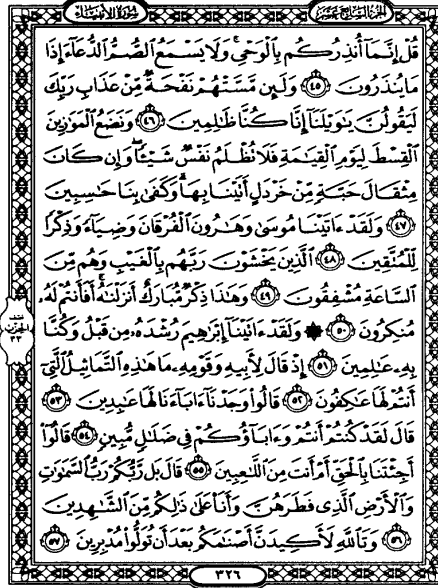 سورة الأنبياء
الجزء السابع عشر
قُلْ إِنَّمَآ أُنذِرُكُم بِٱلْوَحْىِ ۚ وَلَا يَسْمَعُ ٱلصُّمُّ ٱلدُّعَآءَ إِذَا
مَا يُنذَرُونَ ٤٥ وَلَئِن مَّسَّتْهُمْ نَفْحَةٌ مِّنْ عَذَابِ رَبِّكَ
لَيَقُولُنَّ يَٰوَيْلَنَآ إِنَّا كُنَّا ظَٰلِمِينَ ٤٦ وَنَضَعُ ٱلْمَوَٰزِينَ
ٱلْقِسْطَ لِيَوْمِ ٱلْقِيَٰمَةِ فَلَا تُظْلَمُ نَفْسٌ شَيْـًٔا ۖ وَإِن كَانَ
مِثْقَالَ حَبَّةٍ مِّنْ خَرْدَلٍ أَتَيْنَا بِهَا ۗ وَكَفَىٰ بِنَا حَٰسِبِينَ
٤٧ وَلَقَدْ ءَاتَيْنَا مُوسَىٰ وَهَٰرُونَ ٱلْفُرْقَانَ وَضِيَآءً وَذِكْرًا
لِّلْمُتَّقِينَ ٤٨ ٱلَّذِينَ يَخْشَوْنَ رَبَّهُم بِٱلْغَيْبِ وَهُم مِّنَ
ٱلسَّاعَةِ مُشْفِقُونَ ٤٩ وَهَٰذَا ذِكْرٌ مُّبَارَكٌ أَنزَلْنَٰهُ ۚ أَفَأَنتُمْ لَهُۥ
مُنكِرُونَ ٥٠ ۞ وَلَقَدْ ءَاتَيْنَآ إِبْرَٰهِيمَ رُشْدَهُۥ مِن قَبْلُ وَكُنَّا
بِهِۦ عَٰلِمِينَ ٥١ إِذْ قَالَ لِأَبِيهِ وَقَوْمِهِۦ مَا هَٰذِهِ ٱلتَّمَاثِيلُ ٱلَّتِىٓ
أَنتُمْ لَهَا عَٰكِفُونَ ٥٢ قَالُوا۟ وَجَدْنَآ ءَابَآءَنَا لَهَا عَٰبِدِينَ ٥٣
قَالَ لَقَدْ كُنتُمْ أَنتُمْ وَءَابَآؤُكُمْ فِى ضَلَٰلٍ مُّبِينٍ ٥٤ قَالُوٓا۟
أَجِئْتَنَا بِٱلْحَقِّ أَمْ أَنتَ مِنَ ٱللَّٰعِبِينَ ٥٥ قَالَ بَل رَّبُّكُمْ رَبُّ ٱلسَّمَٰوَٰتِ
وَٱلْأَرْضِ ٱلَّذِى فَطَرَهُنَّ وَأَنَا۠ عَلَىٰ ذَٰلِكُم مِّنَ ٱلشَّٰهِدِينَ
٥٦ وَتَٱللَّهِ لَأَكِيدَنَّ أَصْنَٰمَكُم بَعْدَ أَن تُوَلُّوا۟ مُدْبِرِينَ ٥٧
٣٢٦